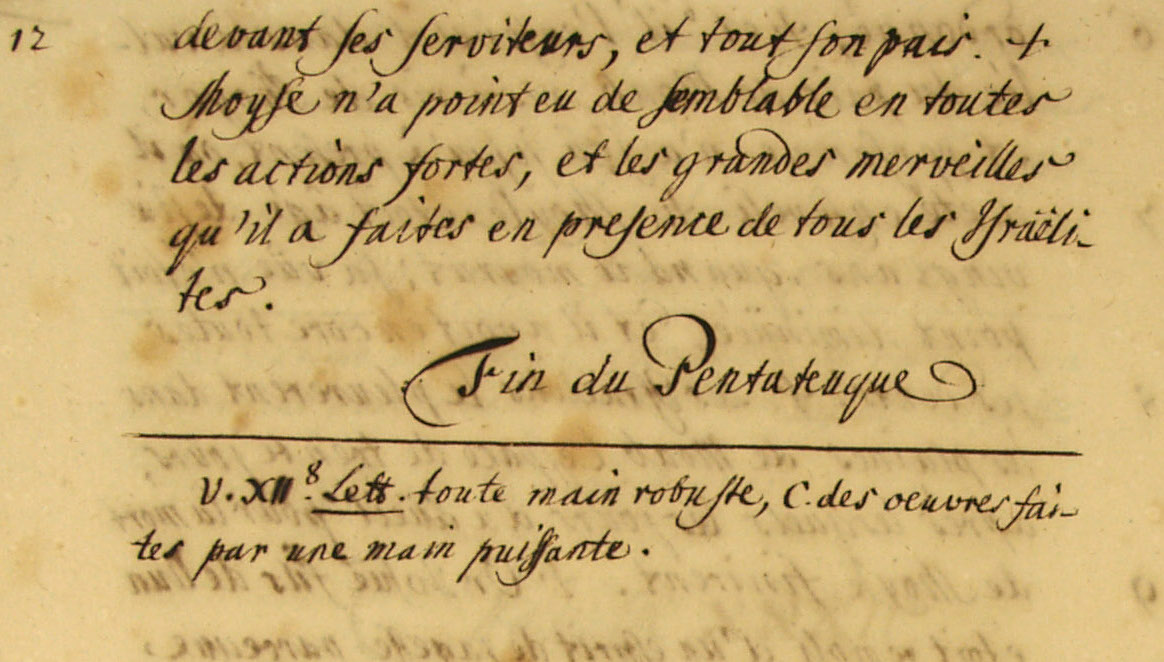 12 devant ses serviteurs, et tout son païs. +
Moyse n'a point eu de semblable en toutes
les actions fortes, et les grandes merveilles
qu'il a faites en presence de tous les Israëli-
tes.
Fin du Pentateuque
V. XII. 8 Lett. toute main robuste, C. des oeuvres fai-
tes par une main puissante.